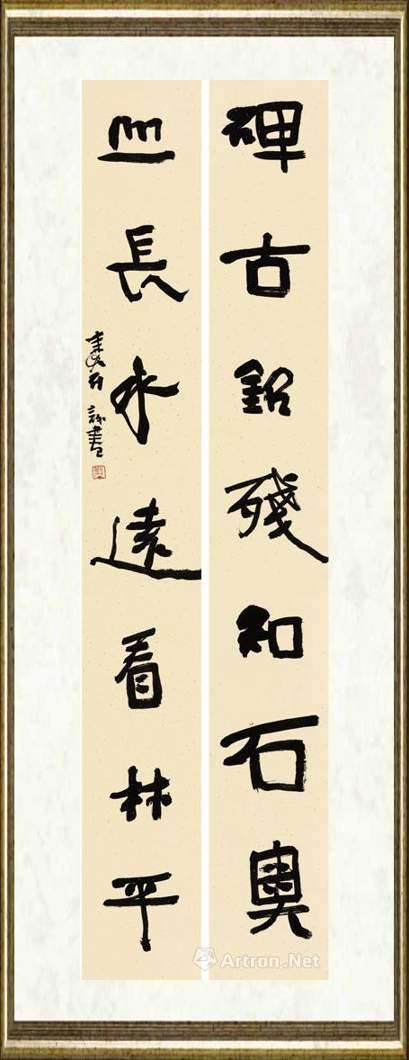 碑古銘殘知石奧
長水遠看林平
書
Artron.Net